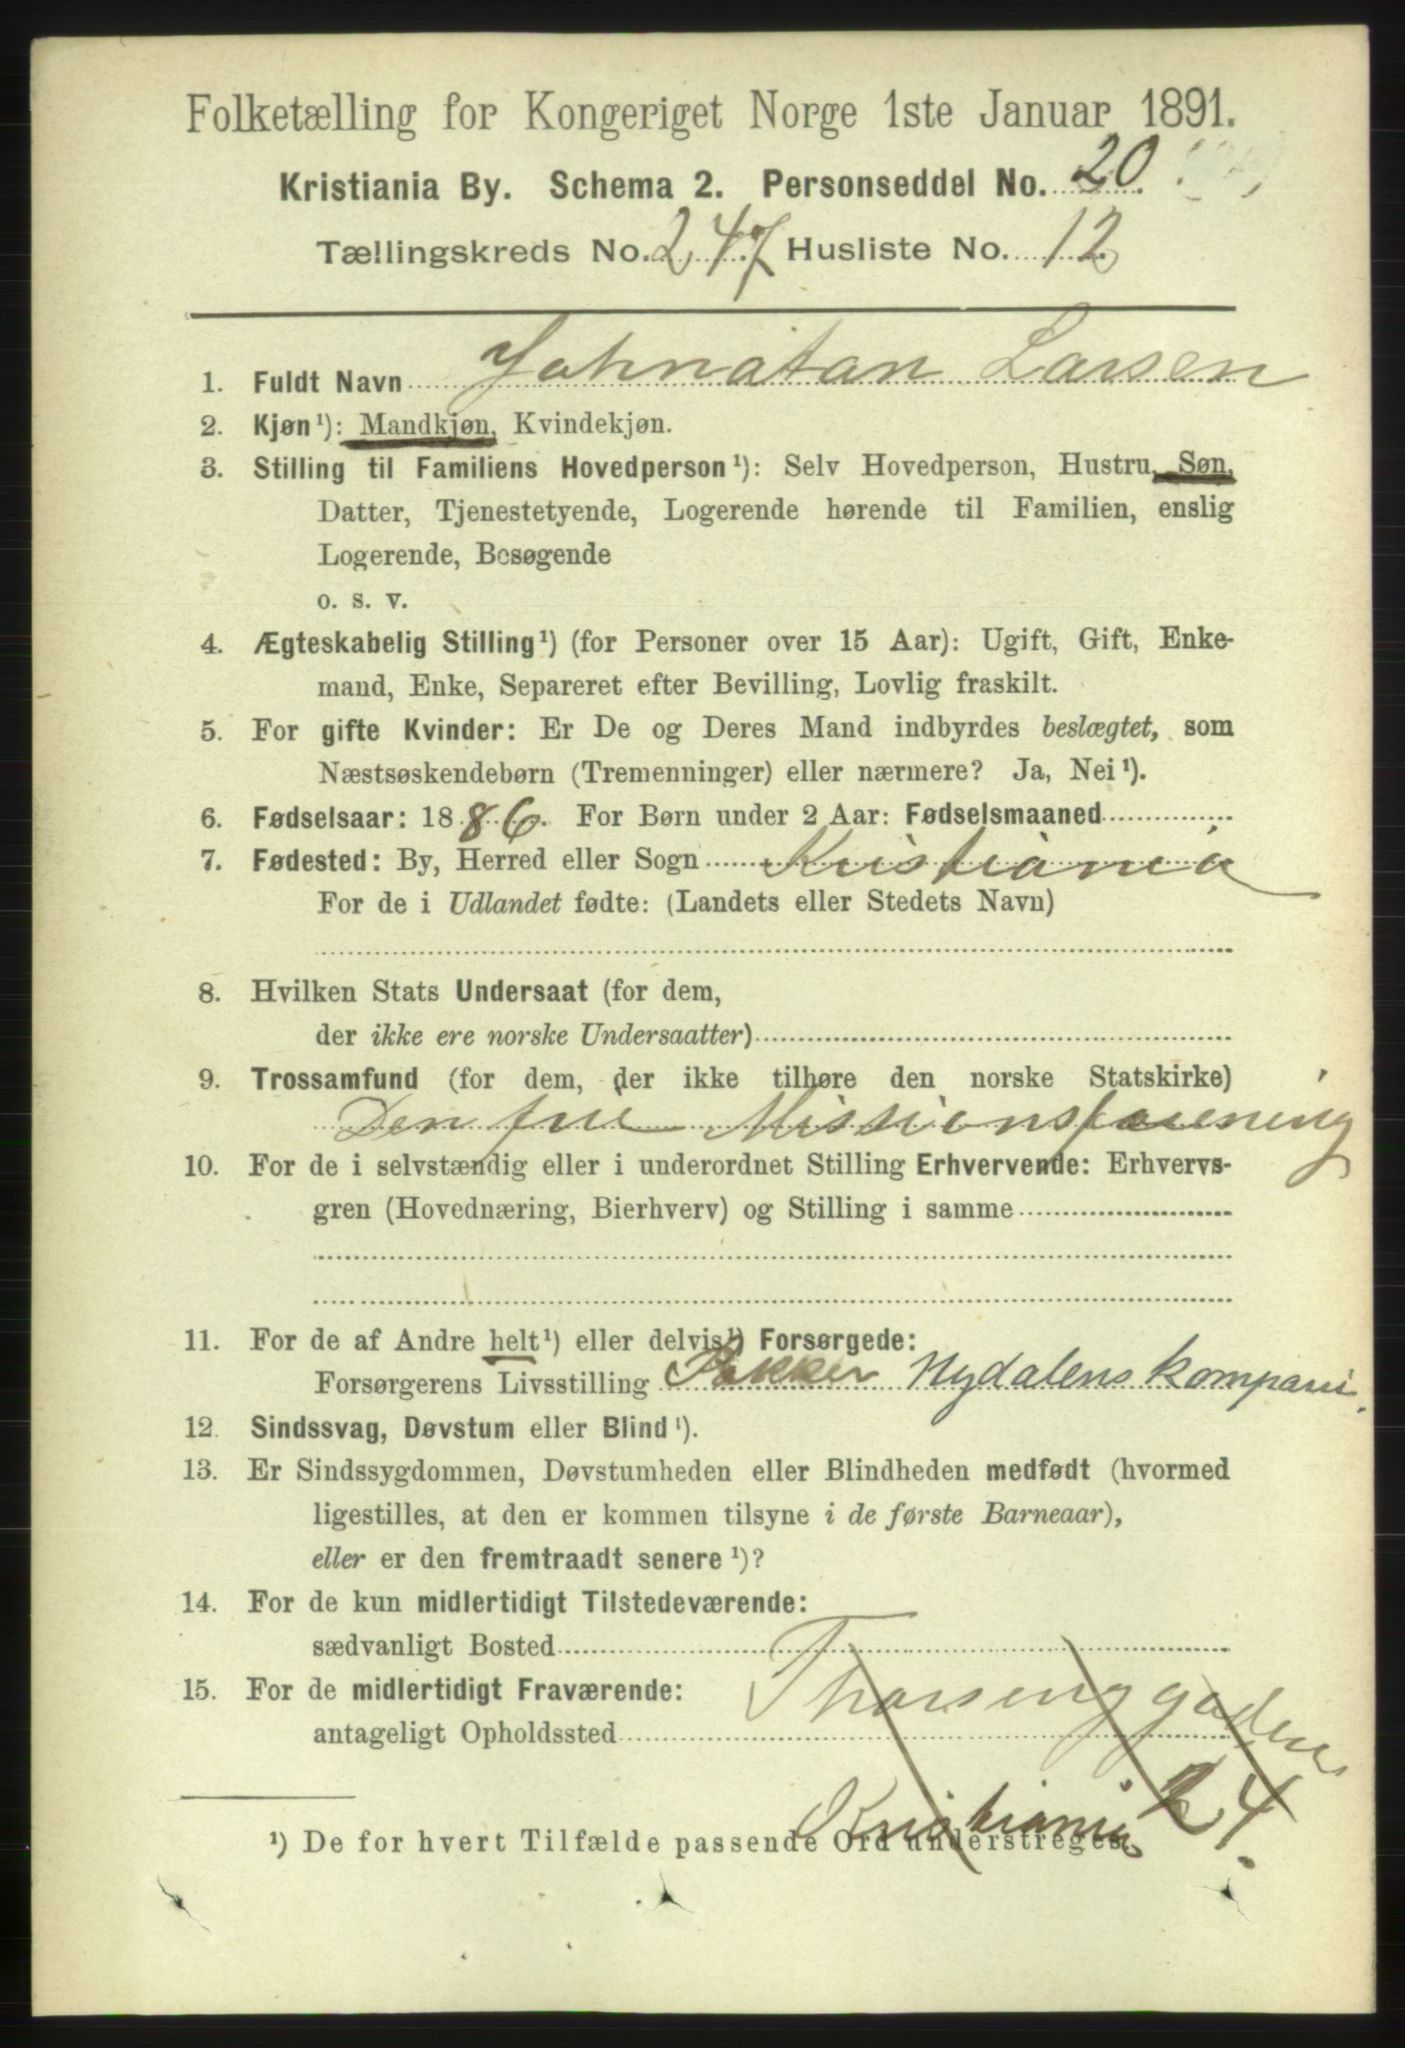 Folketælling for Kongeriget Norge 1ste Januar 1891.
Kristiania By. Schema 2. Personseddel No. 20
Tællingskreds No. 247 Husliste No. 12
1. Fuldt Navn Johnatan Larsen
2. Kjøn¹): Mandkjøn, Kvindekjøn.
3. Stilling til Familiens Hovedperson¹): Selv Hovedperson, Hustru, Søn,
Datter, Tjenestetyende, Logerende hørende til Familien, enslig
Logerende, Besøgende
o. s. v.
4. Ægteskabelig Stilling¹) (for Personer over 15 Aar): Ugift, Gift, Enke-
mand, Enke, Separeret efter Bevilling, Lovlig fraskilt.
5. For gifte Kvinder: Er De og Deres Mand indbyrdes beslægtet, som
Næstsøskendebørn (Tremenninger) eller nærmere? Ja, Nei¹).
6. Fødselsaar: 1886. For Børn under 2 Aar: Fødselsmaaned
7. Fødested: By, Herred eller Sogn Kristiania
For de i Udlandet fødte: (Landets eller Stedets Navn)
8. Hvilken Stats Undersaat (for dem,
der ikke ere norske Undersaatter)
9. Trossamfund (for dem, der ikke tilhøre den norske Statskirke)
Den frie Missionsforening
10. For de i selvstændig eller i underordnet Stilling Erhvervende: Erhvervs-
gren (Hovednæring, Bierhverv) og Stilling i samme
11. For de af Andre helt¹) eller delvis¹) Forsørgede:
Forsørgerens Livsstilling Pakker Nydalens kompani.
12. Sindssvag, Døvstum eller Blind¹).
13. Er Sindssygdommen, Døvstumheden eller Blindheden medfødt (hvormed
ligestilles, at den er kommen tilsyne i de første Barneaar),
eller er den fremtraadt senere¹)?
14. For de kun midlertidigt Tilstedeværende:
sædvanligt Bosted
15. For de midlertidigt Fraværende:
antageligt Opholdssted Thorsenggaden
Kristiania 24.
¹) De for hvert Tilfælde passende Ord understreges